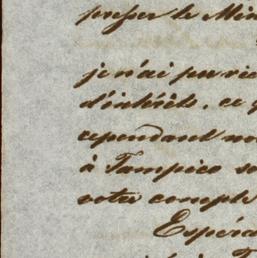 le Min
je n'ai pu rie
d'intérêts, ce q
cependant no
à Tampico so
votre compte
Espéra